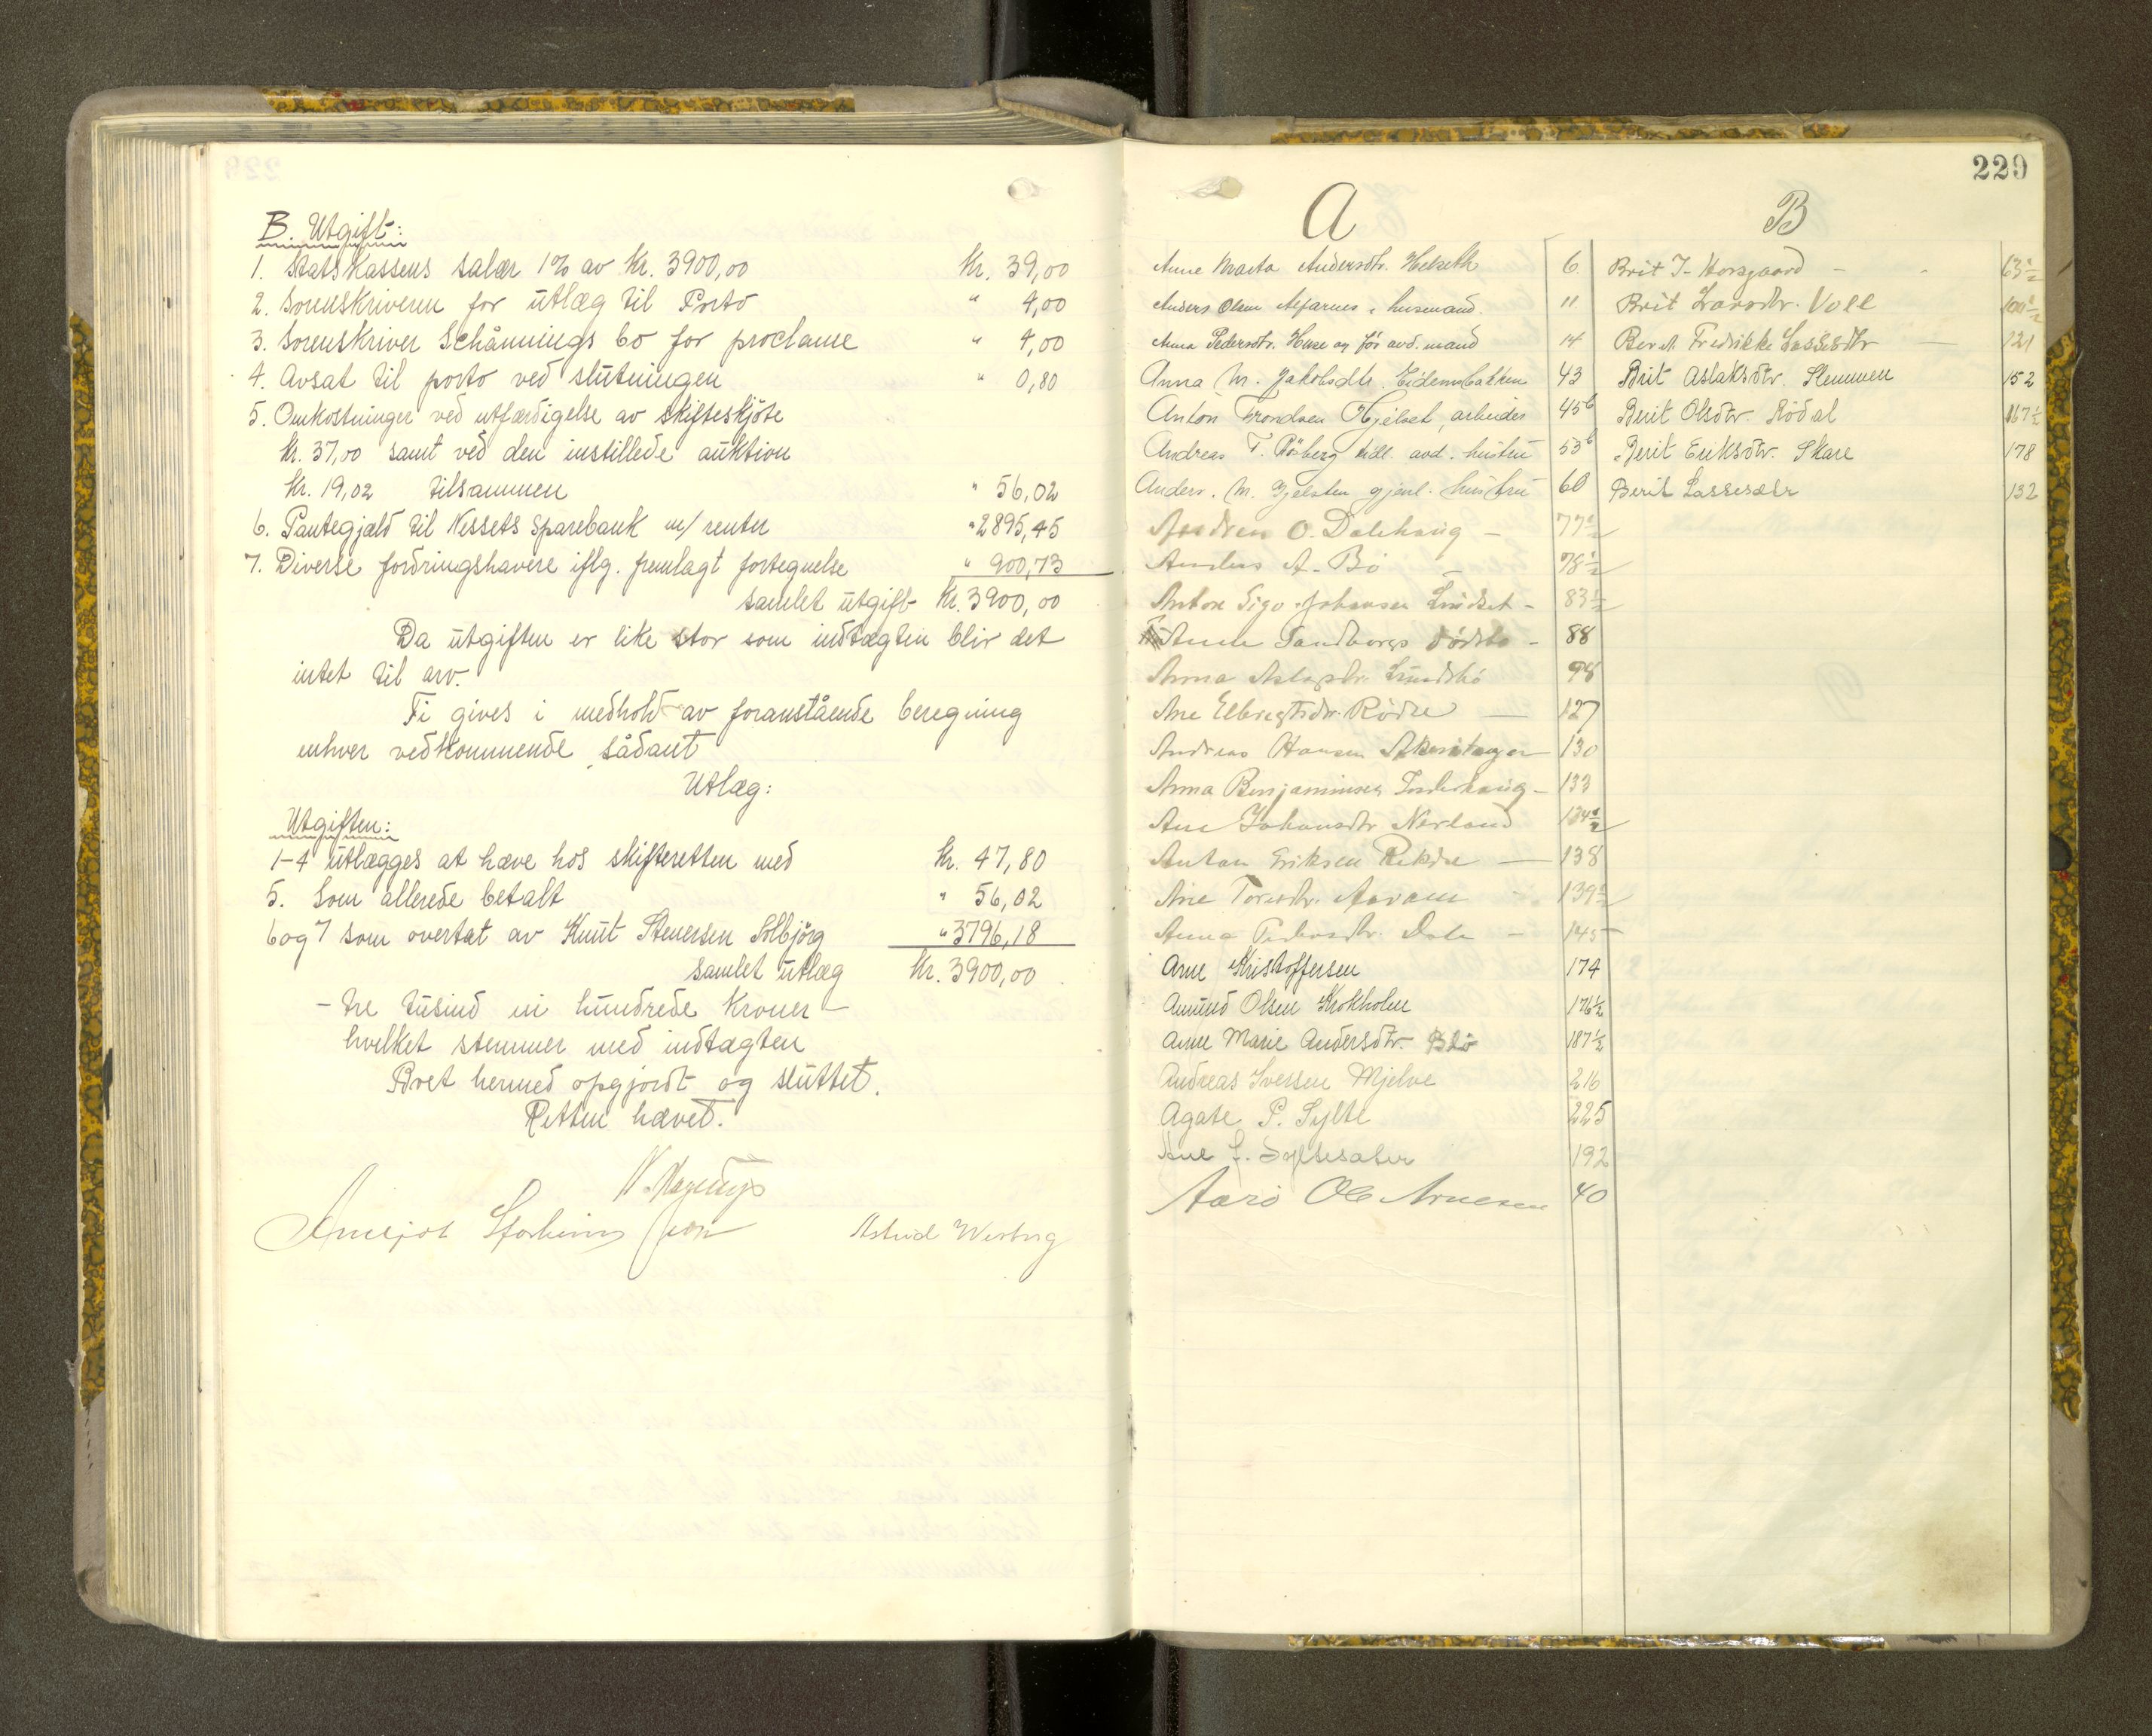 B. Utgift:
1. Statskassens salær 1% av Kr. 3900,00 Kr. 39,00
2. Sorenskriveren for utlæg til Porto " 4,00
3. Sorenskriver Schånnings bo for proclama " 4,00
4. Avsat til porto ved slutningen " 0,80
5. Omkostninger ved utfærdigelse av skifteskjöte
Kr. 37,00 samt ved den instillede auktion
Kr. 19,02 tilsammen " 56,02
6. Pantegjæld til Nessets Sparebank m/ renter " 2895,45
7. Diverse fordringshavere iflg. fremlagt fortegnelse " 900,73
samlet utgift Kr. 3900,00
Da utgiften er like stor som indtægten blir det
intet til arv.
Ti gives i medhold av foranstående beregning
enhver vedkommende sådant
Utlæg:
Utgiften:
1-4 utlægges at hæve hos skifteretten med Kr. 47,80
5. Som allerede betalt " 56,02
6 og 7 som overtat av Knut Stenersen Solbjörg " 3796,18
samlet utlæg Kr. 3900,00
- tre tusind ni hundrede Kroner -
hvilket stemmer med indtægten
Boet hermed opgjordt og sluttet.
Retten hævet.
Astrid Wesberg
229
A
Anne Marta Andersdtr. Helseth 6
Anders Olsen Alfarnes, husmand. 11
Anna Pedersdtr. Huse og för avd. mand 14
Anna M. Jakobsdtr. Eidemsbakken 43
Anton Trondsen Hjelset, arbeider 45b
Andreas T. Rösberg tidl. avd. hustru 53b
Anders. M. Gjelsten gjenl. hustru 60
Andreas O. Dalehaug - 77½
Anders A. Bö - 78½
Anton Sigv. Johansen Lindset - 83½
Anne Sandborgs dödsbo - 88
Anna Aslagsdtr. Lundsbö 98
Ane Elbregtsdtr. Rödse - 127
Andreas Hansen Åkerstanger - 130
Anna Benjaminsen - 133
Ane Johansdtr Norland 134½
Anton Eriksen Rekdse - 138
Ane Toresdtr. 139½
Anna Pedersdtr. Dale - 145
Arne Kristoffersen 174
Amund Olsen Krokholm 176½
Anne Marie Andersdtr. Blö 187½
Andreas Iversen Mjelve 216
Agate P. Sylte 225
Ane L. Syltesæter 192
Aarö Ole Arnesen 40
B
Brit J- Horsgaard - 63½
Brit Larsdtr. Voll 100½
Berit Fredrikke Lassesdtr - 121
Brit Aslaksdtr. Stemmen 152
Berit Olsdtr. Rödal 167½
Berit Eriksdtr. Skare 178
Berit Lassesætr 132